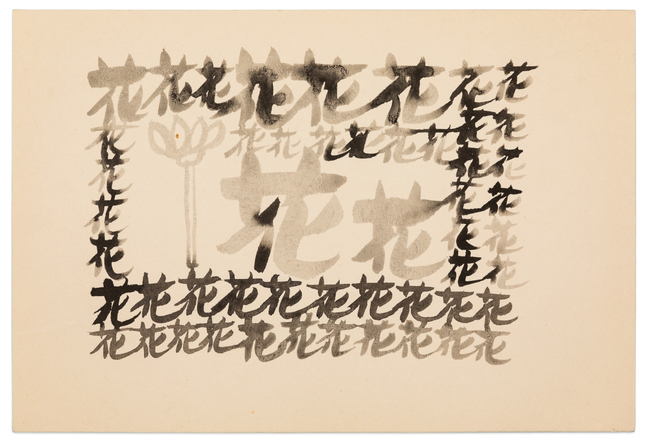 花花花花花花花花
花花花花花花花花花
花花花
花花花花花
花花
花花花
花花花花花花花花花花
花花花花花花花花花花花